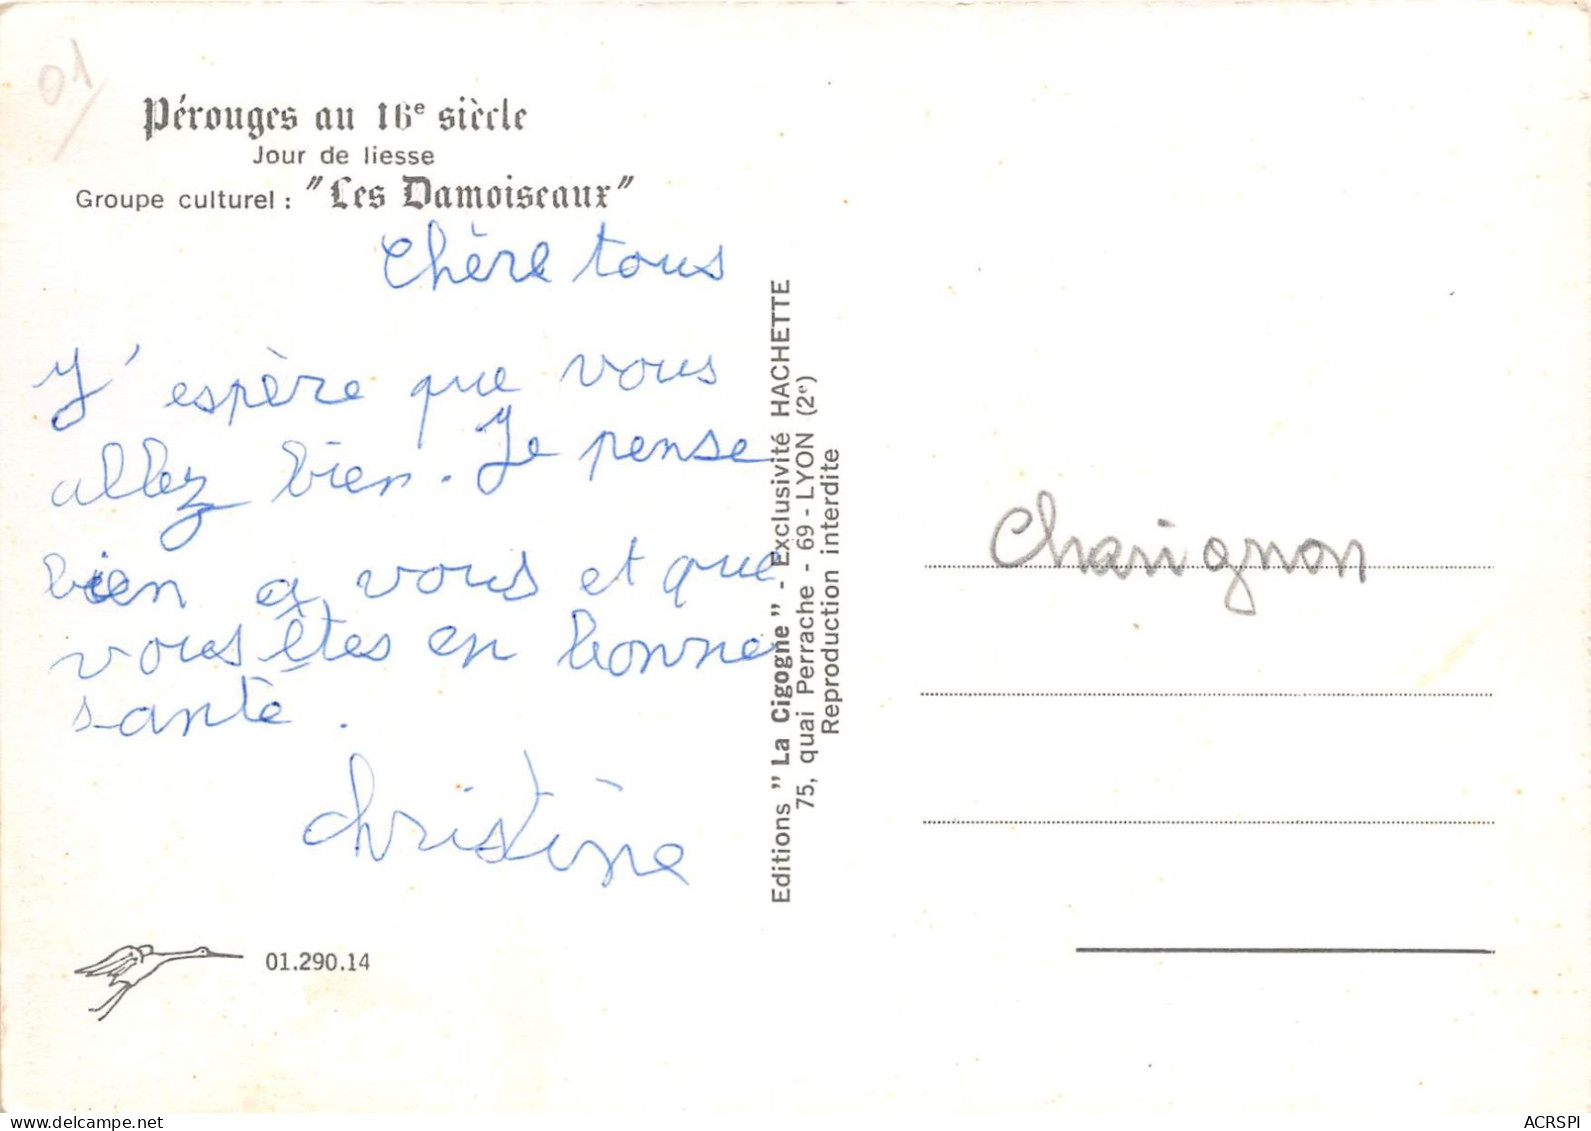 01
Pérouges au 16e siècle
Jour de liesse
Groupe culturel : "Les Damoiseaux"
Chère tous
J'espère que vous
allez bien. Je pense
bien a vous et que
vous êtes en bonne
santè.
christine
01.290.14
Editions "La Cigogne" - Exclusivité HACHETTE
75, quai Perrache - 69 - LYON (2e)
Reproduction interdite
Charignon
www.delcampe.net
ACRSPI